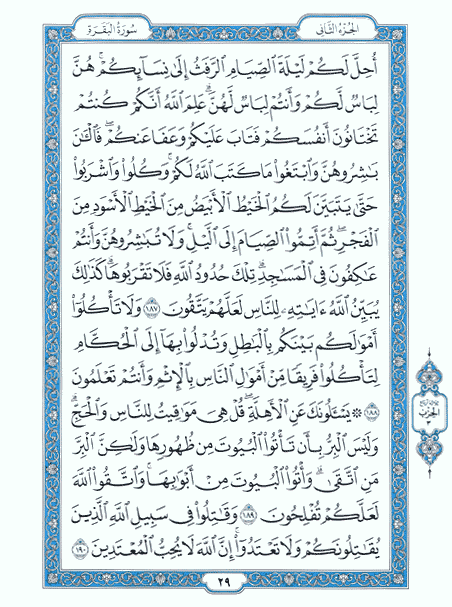 سُورَةُ البَقَرَةِ الجُزْءُ الثَّانِي
أُحِلَّ لَكُمْ لَيْلَةَ ٱلصِّيَامِ ٱلرَّفَثُ إِلَىٰ نِسَآئِكُمْ ۚ هُنَّ
لِبَاسٌ لَّكُمْ وَأَنتُمْ لِبَاسٌ لَّهُنَّ ۗ عَلِمَ ٱللَّهُ أَنَّكُمْ كُنتُمْ
تَخْتَانُونَ أَنفُسَكُمْ فَتَابَ عَلَيْكُمْ وَعَفَا عَنكُمْ ۖ فَٱلْـَٰٔنَ
بَٰشِرُوهُنَّ وَٱبْتَغُوا۟ مَا كَتَبَ ٱللَّهُ لَكُمْ ۚ وَكُلُوا۟ وَٱشْرَبُوا۟
حَتَّىٰ يَتَبَيَّنَ لَكُمُ ٱلْخَيْطُ ٱلْأَبْيَضُ مِنَ ٱلْخَيْطِ ٱلْأَسْوَدِ مِنَ
ٱلْفَجْرِ ۖ ثُمَّ أَتِمُّوا۟ ٱلصِّيَامَ إِلَى ٱلَّيْلِ ۚ وَلَا تُبَٰشِرُوهُنَّ وَأَنتُمْ
عَٰكِفُونَ فِى ٱلْمَسَٰجِدِ ۗ تِلْكَ حُدُودُ ٱللَّهِ فَلَا تَقْرَبُوهَا ۗ كَذَٰلِكَ
يُبَيِّنُ ٱللَّهُ ءَايَٰتِهِۦ لِلنَّاسِ لَعَلَّهُمْ يَتَّقُونَ ١٨٧ وَلَا تَأْكُلُوٓا۟
أَمْوَٰلَكُم بَيْنَكُم بِٱلْبَٰطِلِ وَتُدْلُوا۟ بِهَآ إِلَى ٱلْحُكَّامِ
لِتَأْكُلُوا۟ فَرِيقًا مِّنْ أَمْوَٰلِ ٱلنَّاسِ بِٱلْإِثْمِ وَأَنتُمْ تَعْلَمُونَ
١٨٨ ۞ يَسْـَٔلُونَكَ عَنِ ٱلْأَهِلَّةِ ۖ قُلْ هِىَ مَوَٰقِيتُ لِلنَّاسِ وَٱلْحَجِّ ۗ
وَلَيْسَ ٱلْبِرُّ بِأَن تَأْتُوا۟ ٱلْبُيُوتَ مِن ظُهُورِهَا وَلَٰكِنَّ ٱلْبِرَّ
مَنِ ٱتَّقَىٰ ۗ وَأْتُوا۟ ٱلْبُيُوتَ مِنْ أَبْوَٰبِهَا ۚ وَٱتَّقُوا۟ ٱللَّهَ
لَعَلَّكُمْ تُفْلِحُونَ ١٨٩ وَقَٰتِلُوا۟ فِى سَبِيلِ ٱللَّهِ ٱلَّذِينَ
يُقَٰتِلُونَكُمْ وَلَا تَعْتَدُوٓا۟ ۚ إِنَّ ٱللَّهَ لَا يُحِبُّ ٱلْمُعْتَدِينَ ١٩٠
الحِزْب
٣
٢٩